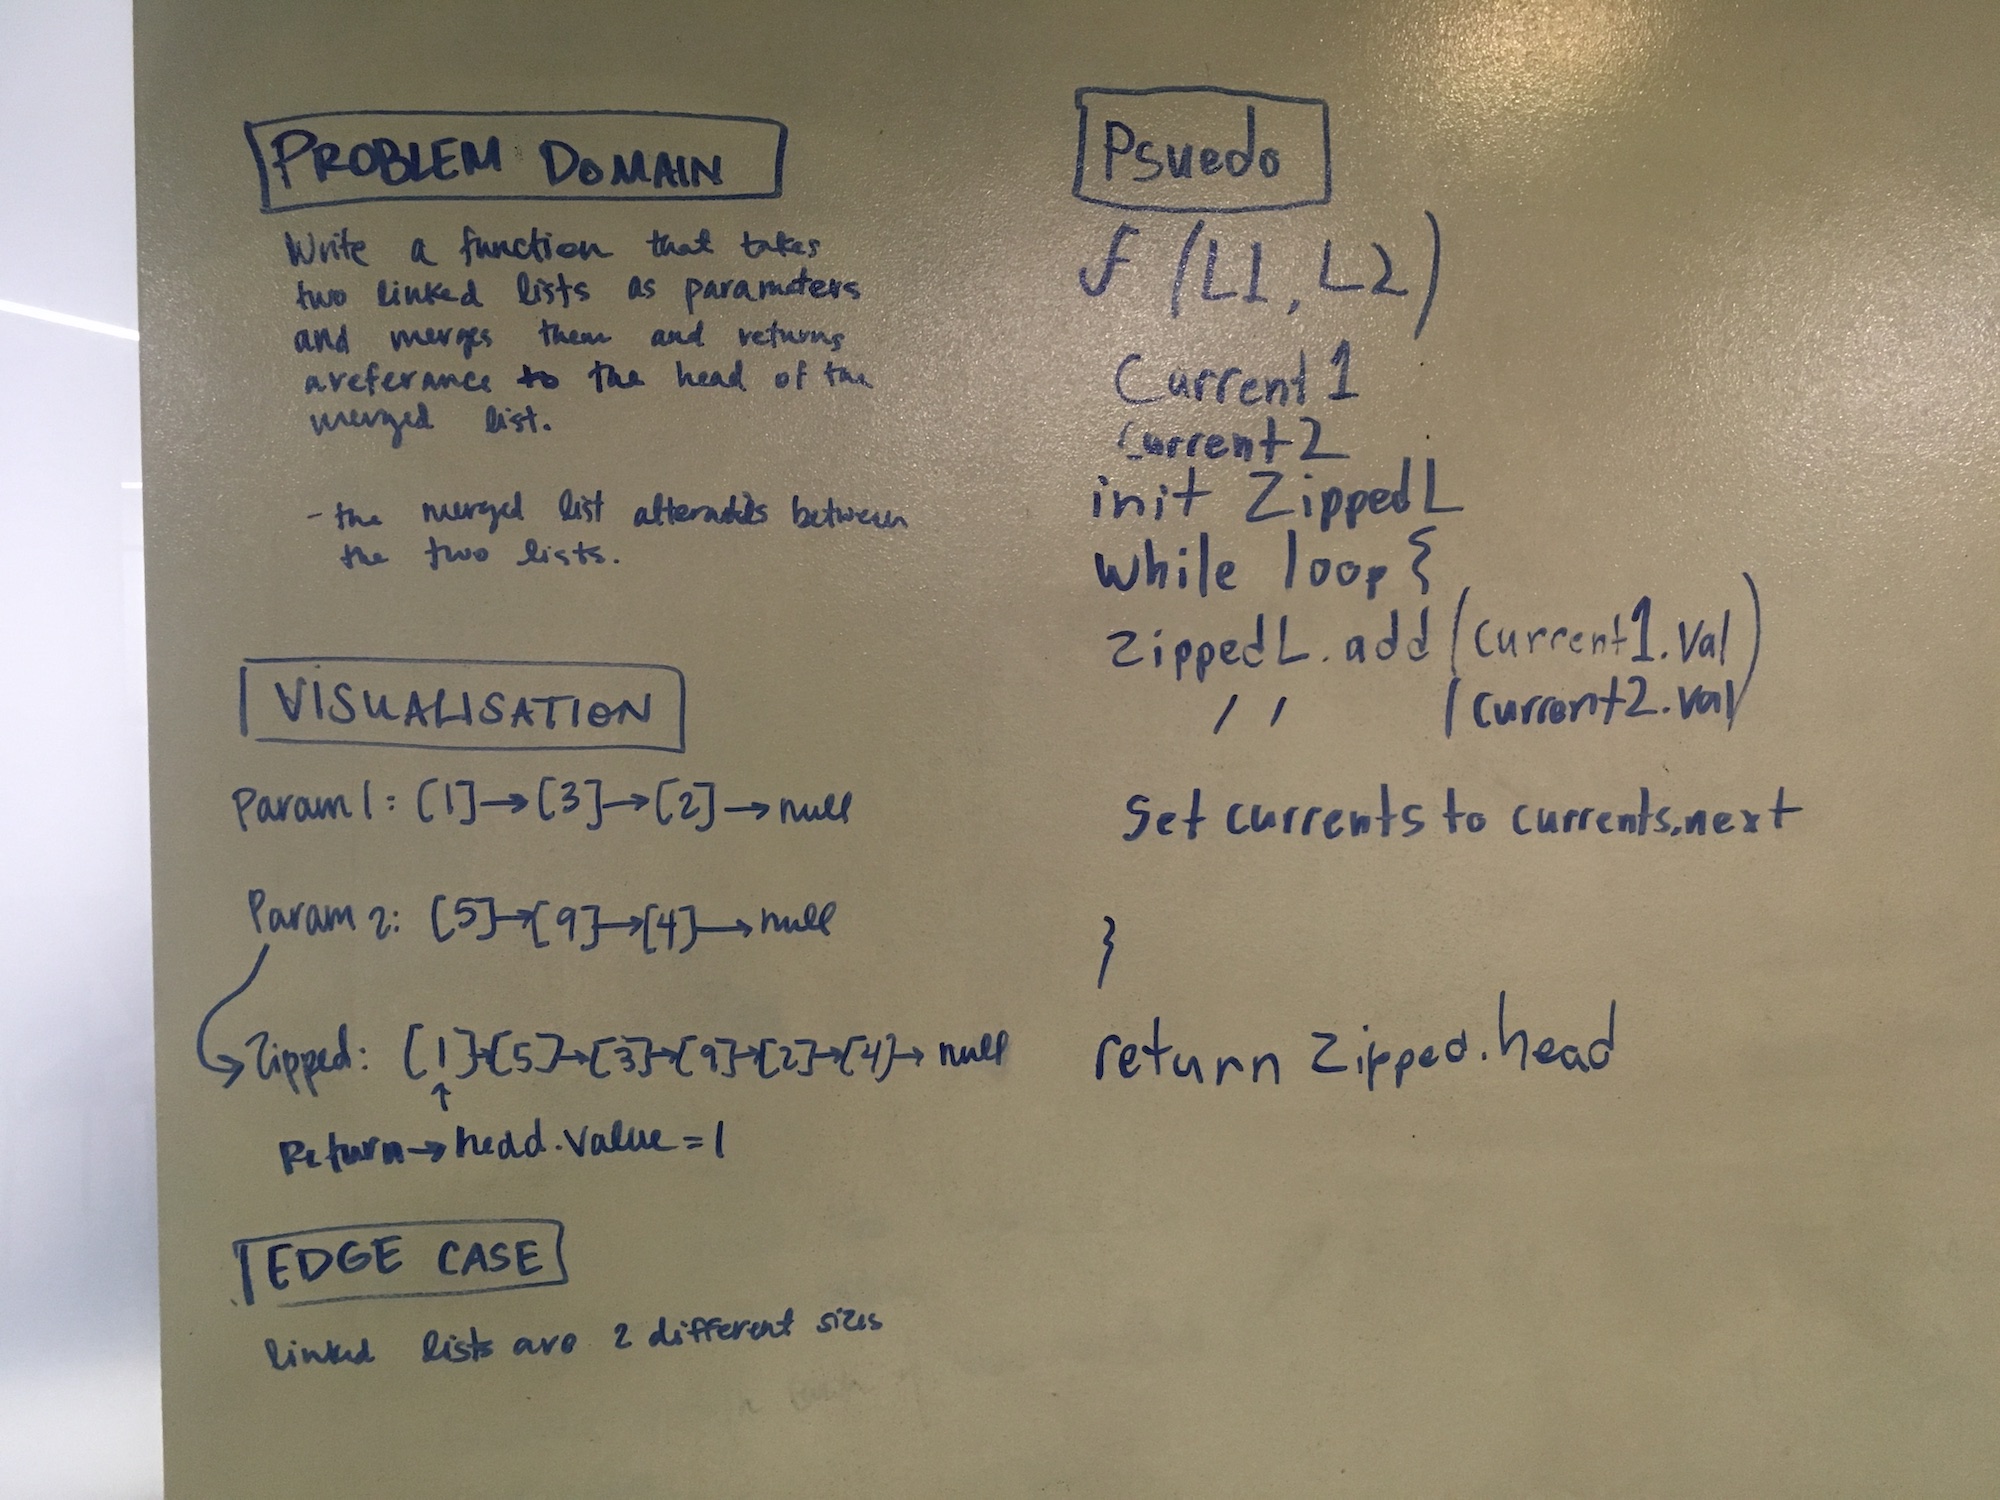 PROBLEM DOMAIN
Write a function that takes
two linked lists as parameters
and merges them and returns
a referance to the head of the
merged list.
- the merged list alternates between
the two lists.
VISUALISATION
Param 1: [1]→[3]→[2]→null
Param 2: [5]→[9]→[4]→null
Zipped: [1]→[5]→[3]→[9]→[2]→[4]→ null
↑
Return→head.value=1
EDGE CASE
linked lists are 2 different sizes
Psuedo
f (L1, L2)
Current1
Current2
init ZippedL
while loop {
ZippedL.add (current1.val)
// (current2.val)
Set currents to currents.next
}
return Zipped.head